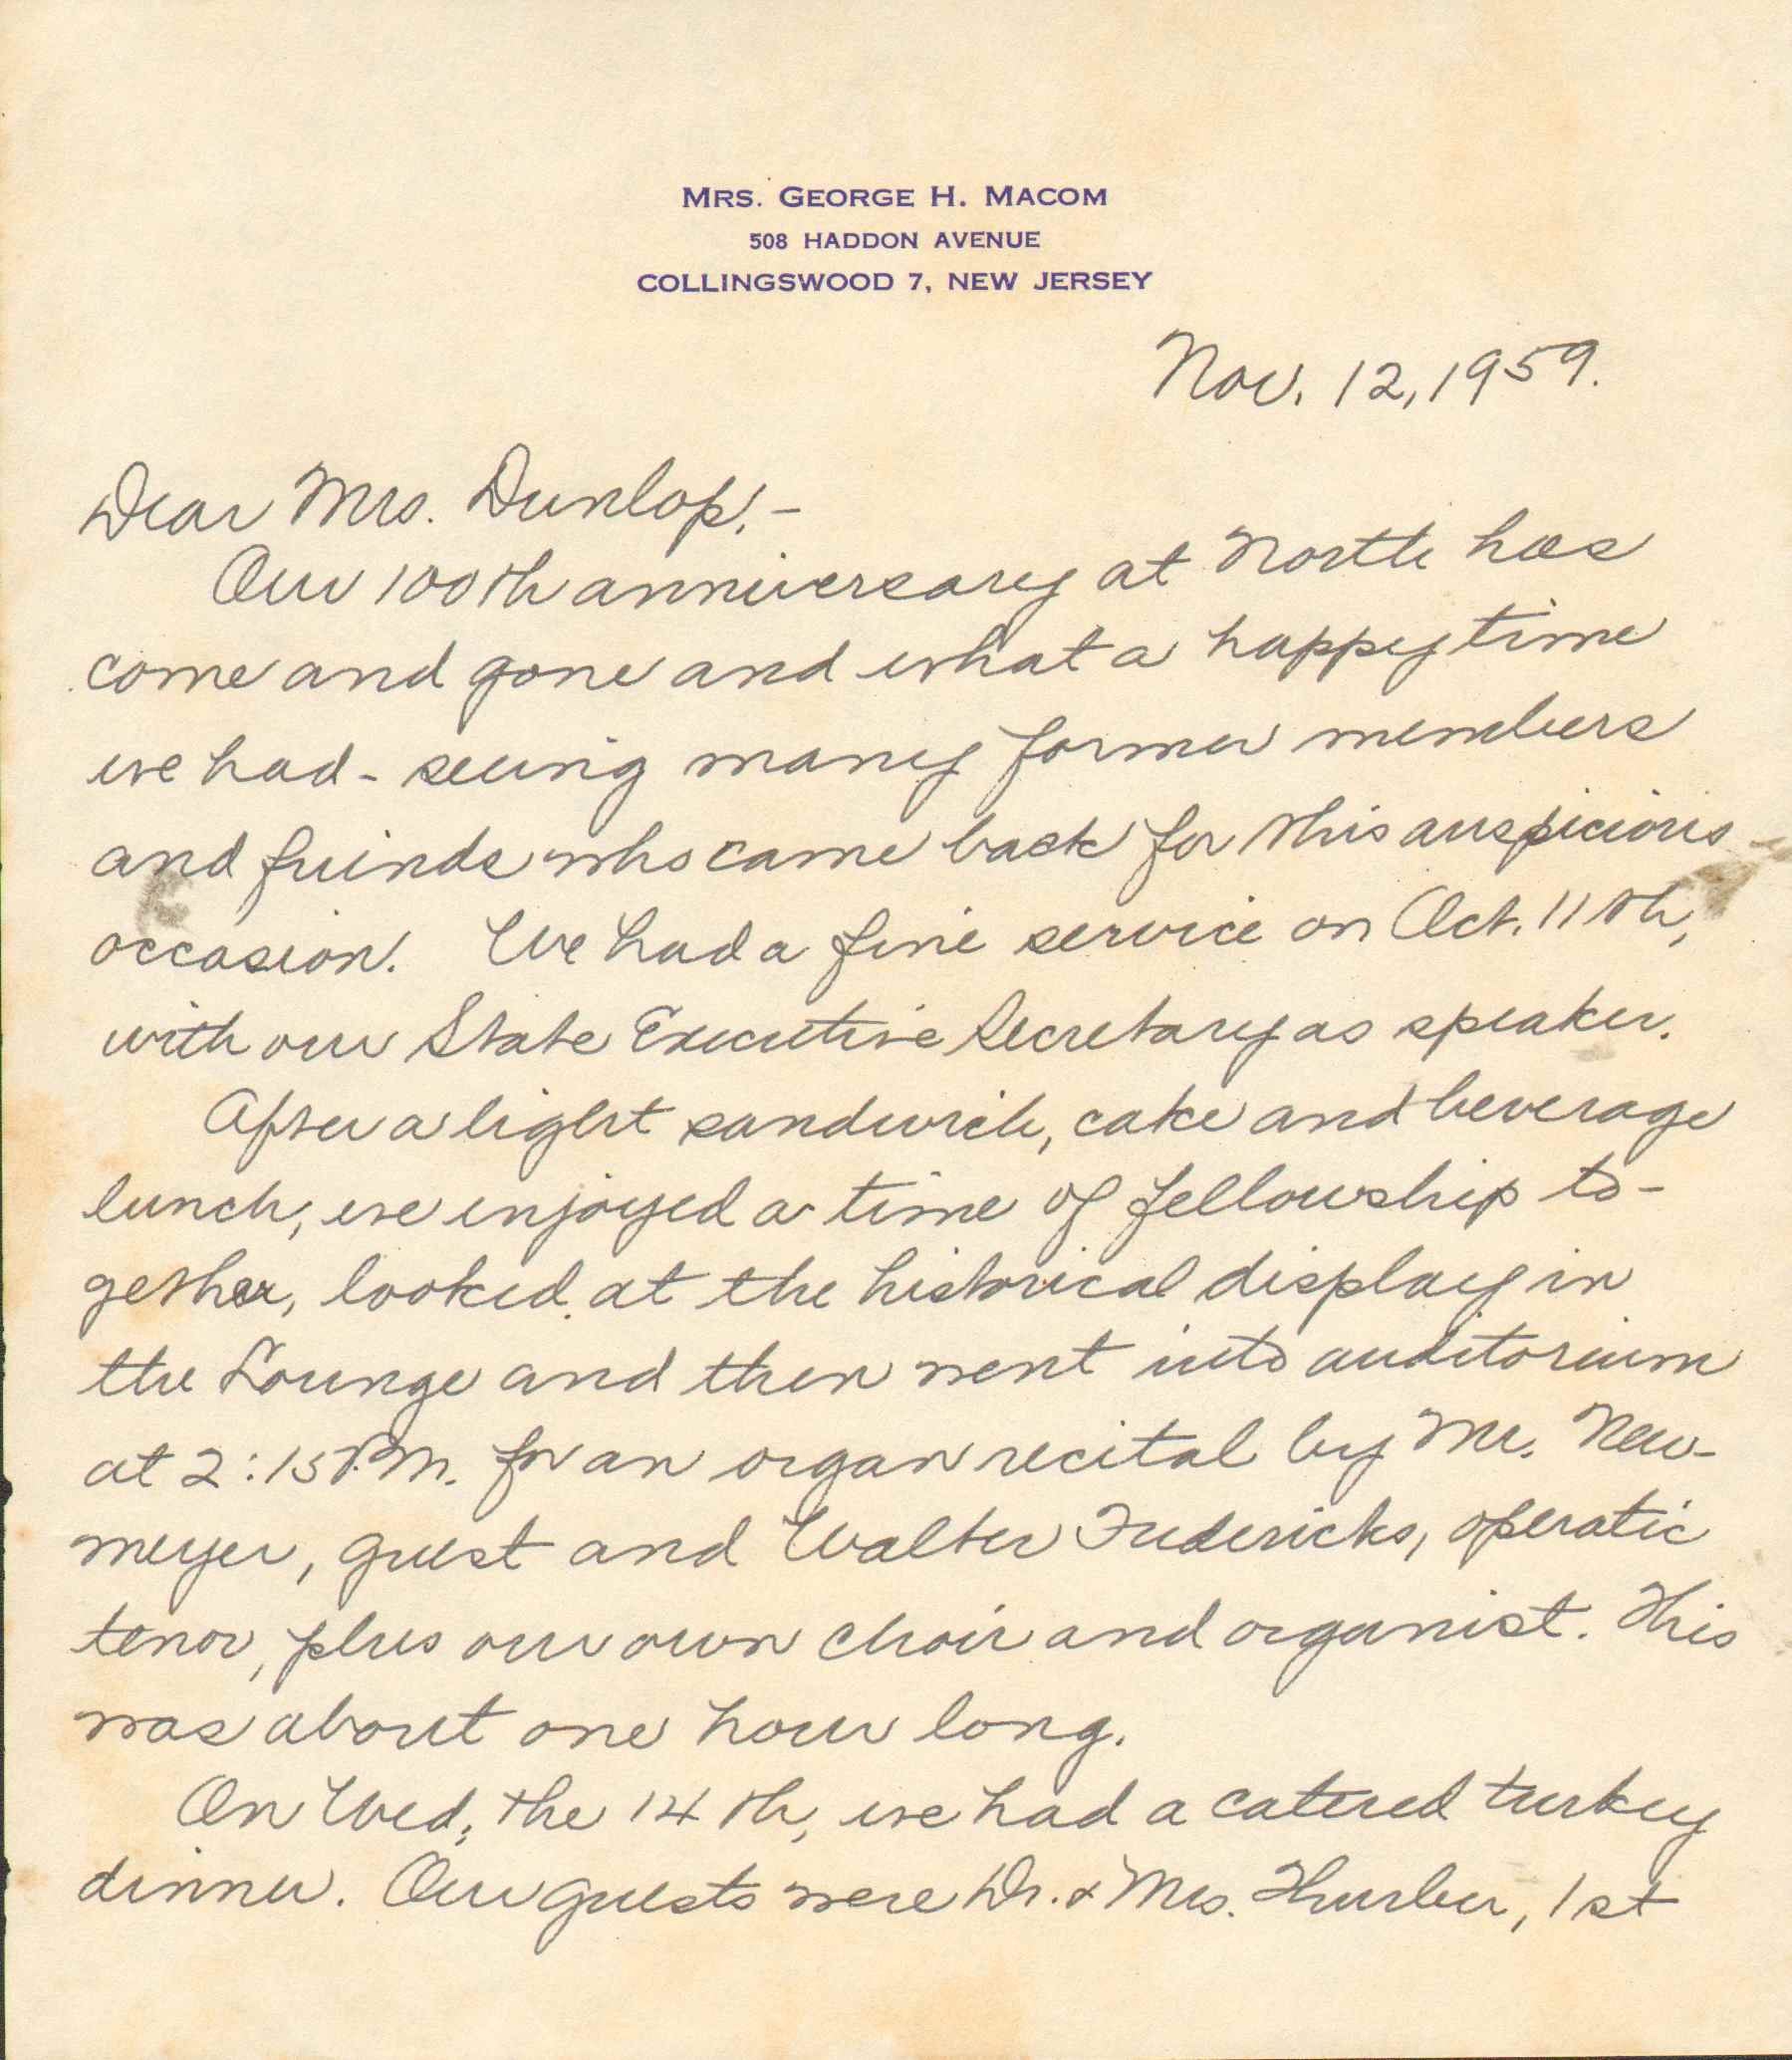 MRS. GEORGE H. MACOM
508 HADDON AVENUE
COLLINGSWOOD 7, NEW JERSEY
Nov. 12, 1959.
Dear Mrs. Dunlop:-
Our 100th anniversary at North has
come and gone and what a happy time
we had - seeing many former members
and friends who came back for this auspicious
occasion. We had a fine service on Oct. 11th,
with our State Executive Secretary as speaker.
After a light sandwich, cake and beverage
lunch, we enjoyed a time of fellowship to-
gether, looked at the historical display in
the Lounge and then went into auditorium
at 2:15 P.M. for an organ recital by Mr. New-
meyer, guest and Walter Fredericks, operatic
tenor, plus our own choir and organist. This
was about one hour long.
On Wed., the 14th, we had a catered turkey
dinner. Our guests were Dr. & Mrs. Thurber, 1st